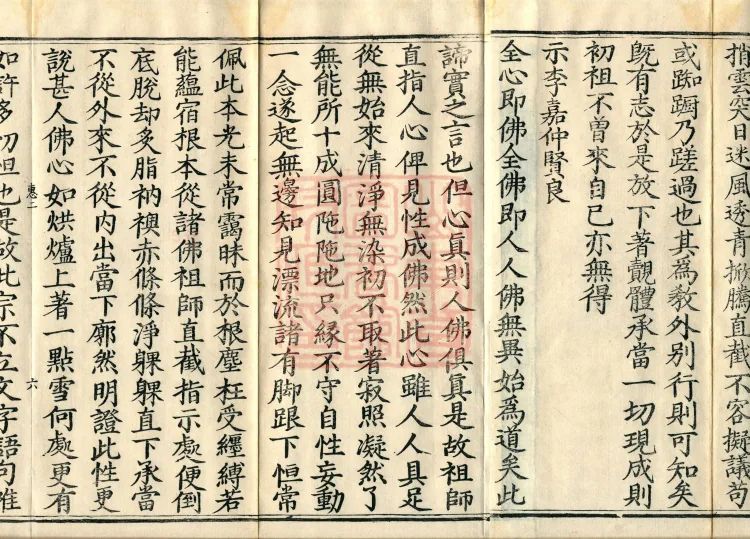 捎雲突日迷風透青掀騰直截不容擬議苟
或踟躕乃蹉過也其爲教外别行則可知矣
旣有志於是放下著覿體承當一切現成則
初祖不曾來自己亦無得
示李嘉仲賢良
全心即佛全佛即人人佛無異始爲道矣此
諦實之言也但心真則人佛俱真是故祖師
直指人心俾見性成佛然此心雖人人具足
從無始來清淨無染初不取著寂照凝然了
無能所十成圓陁陁地只緣不守自性妄動
一念遂起無邊知見漂流諸有脚跟下恒常
佩此本光未常霭昧而於根塵枉受纏縛若
能藴宿根本從諸佛祖師直截指示處便倒
底脫却炙脂衲襖赤條條淨躶躶直下承當
不從外來不從内出當下廓然明證此性更
說甚人佛心如烘爐上著一點雪何處更有
惠二 六
如許多切怛也是故此宗不立文字語句唯